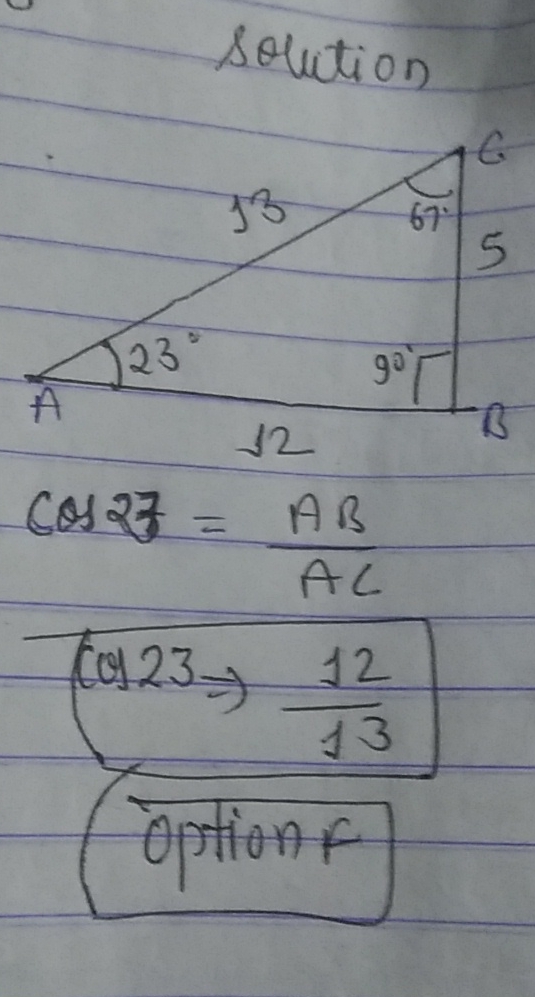 solution
C
13
67°
5
23°
90°
A
B
12
Cos 23 = AB / AC
Cos 23 => 12 / 13
option F